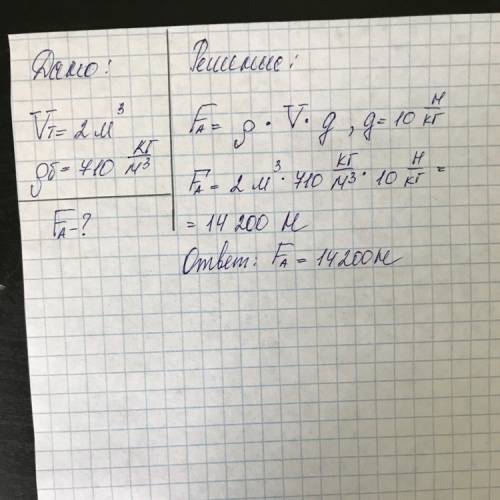 Дано:
Vт = 2 м³
ρб = 710 кг/м³
FА - ?
Решение:
FА = ρ · V · g , g = 10 Н/кг
FА = 2 м³ · 710 кг/м³ · 10 Н/кг =
= 14 200 Н
Ответ: FА = 14200 Н